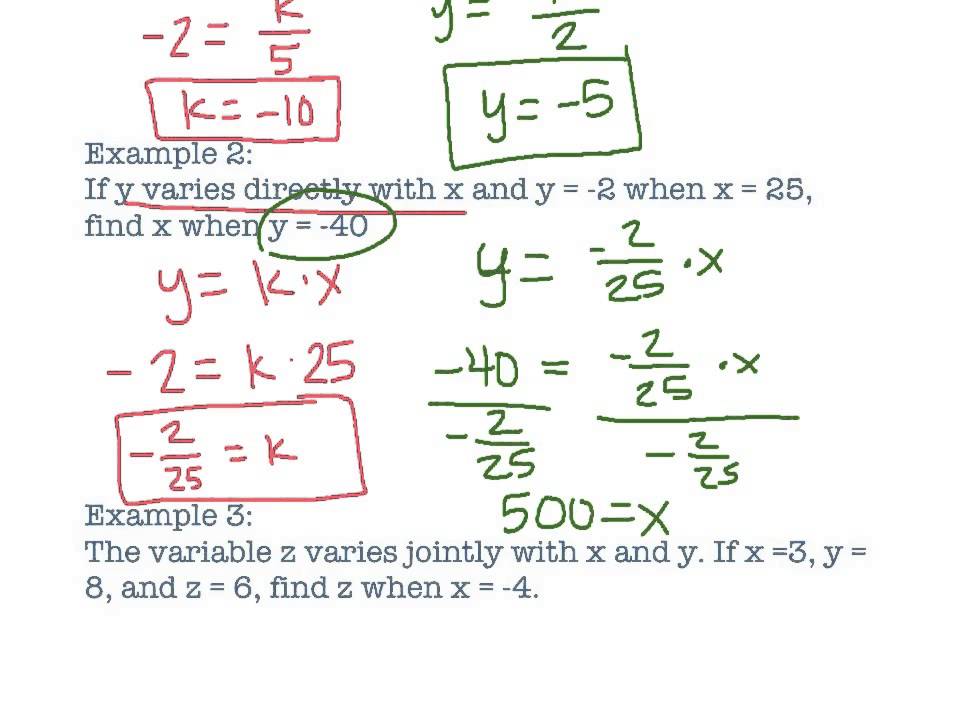 -2 = k/5
y = /2
k = -10
y = -5
Example 2:
If y varies directly with x and y = -2 when x = 25,
find x when y = -40
y = k·x
y = -2/25 ·x
-2 = k·25
-40 = -2/25 ·x
-2/25 = k
-2/25
-2/25
500=x
Example 3:
The variable z varies jointly with x and y. If x =3, y =
8, and z = 6, find z when x = -4.